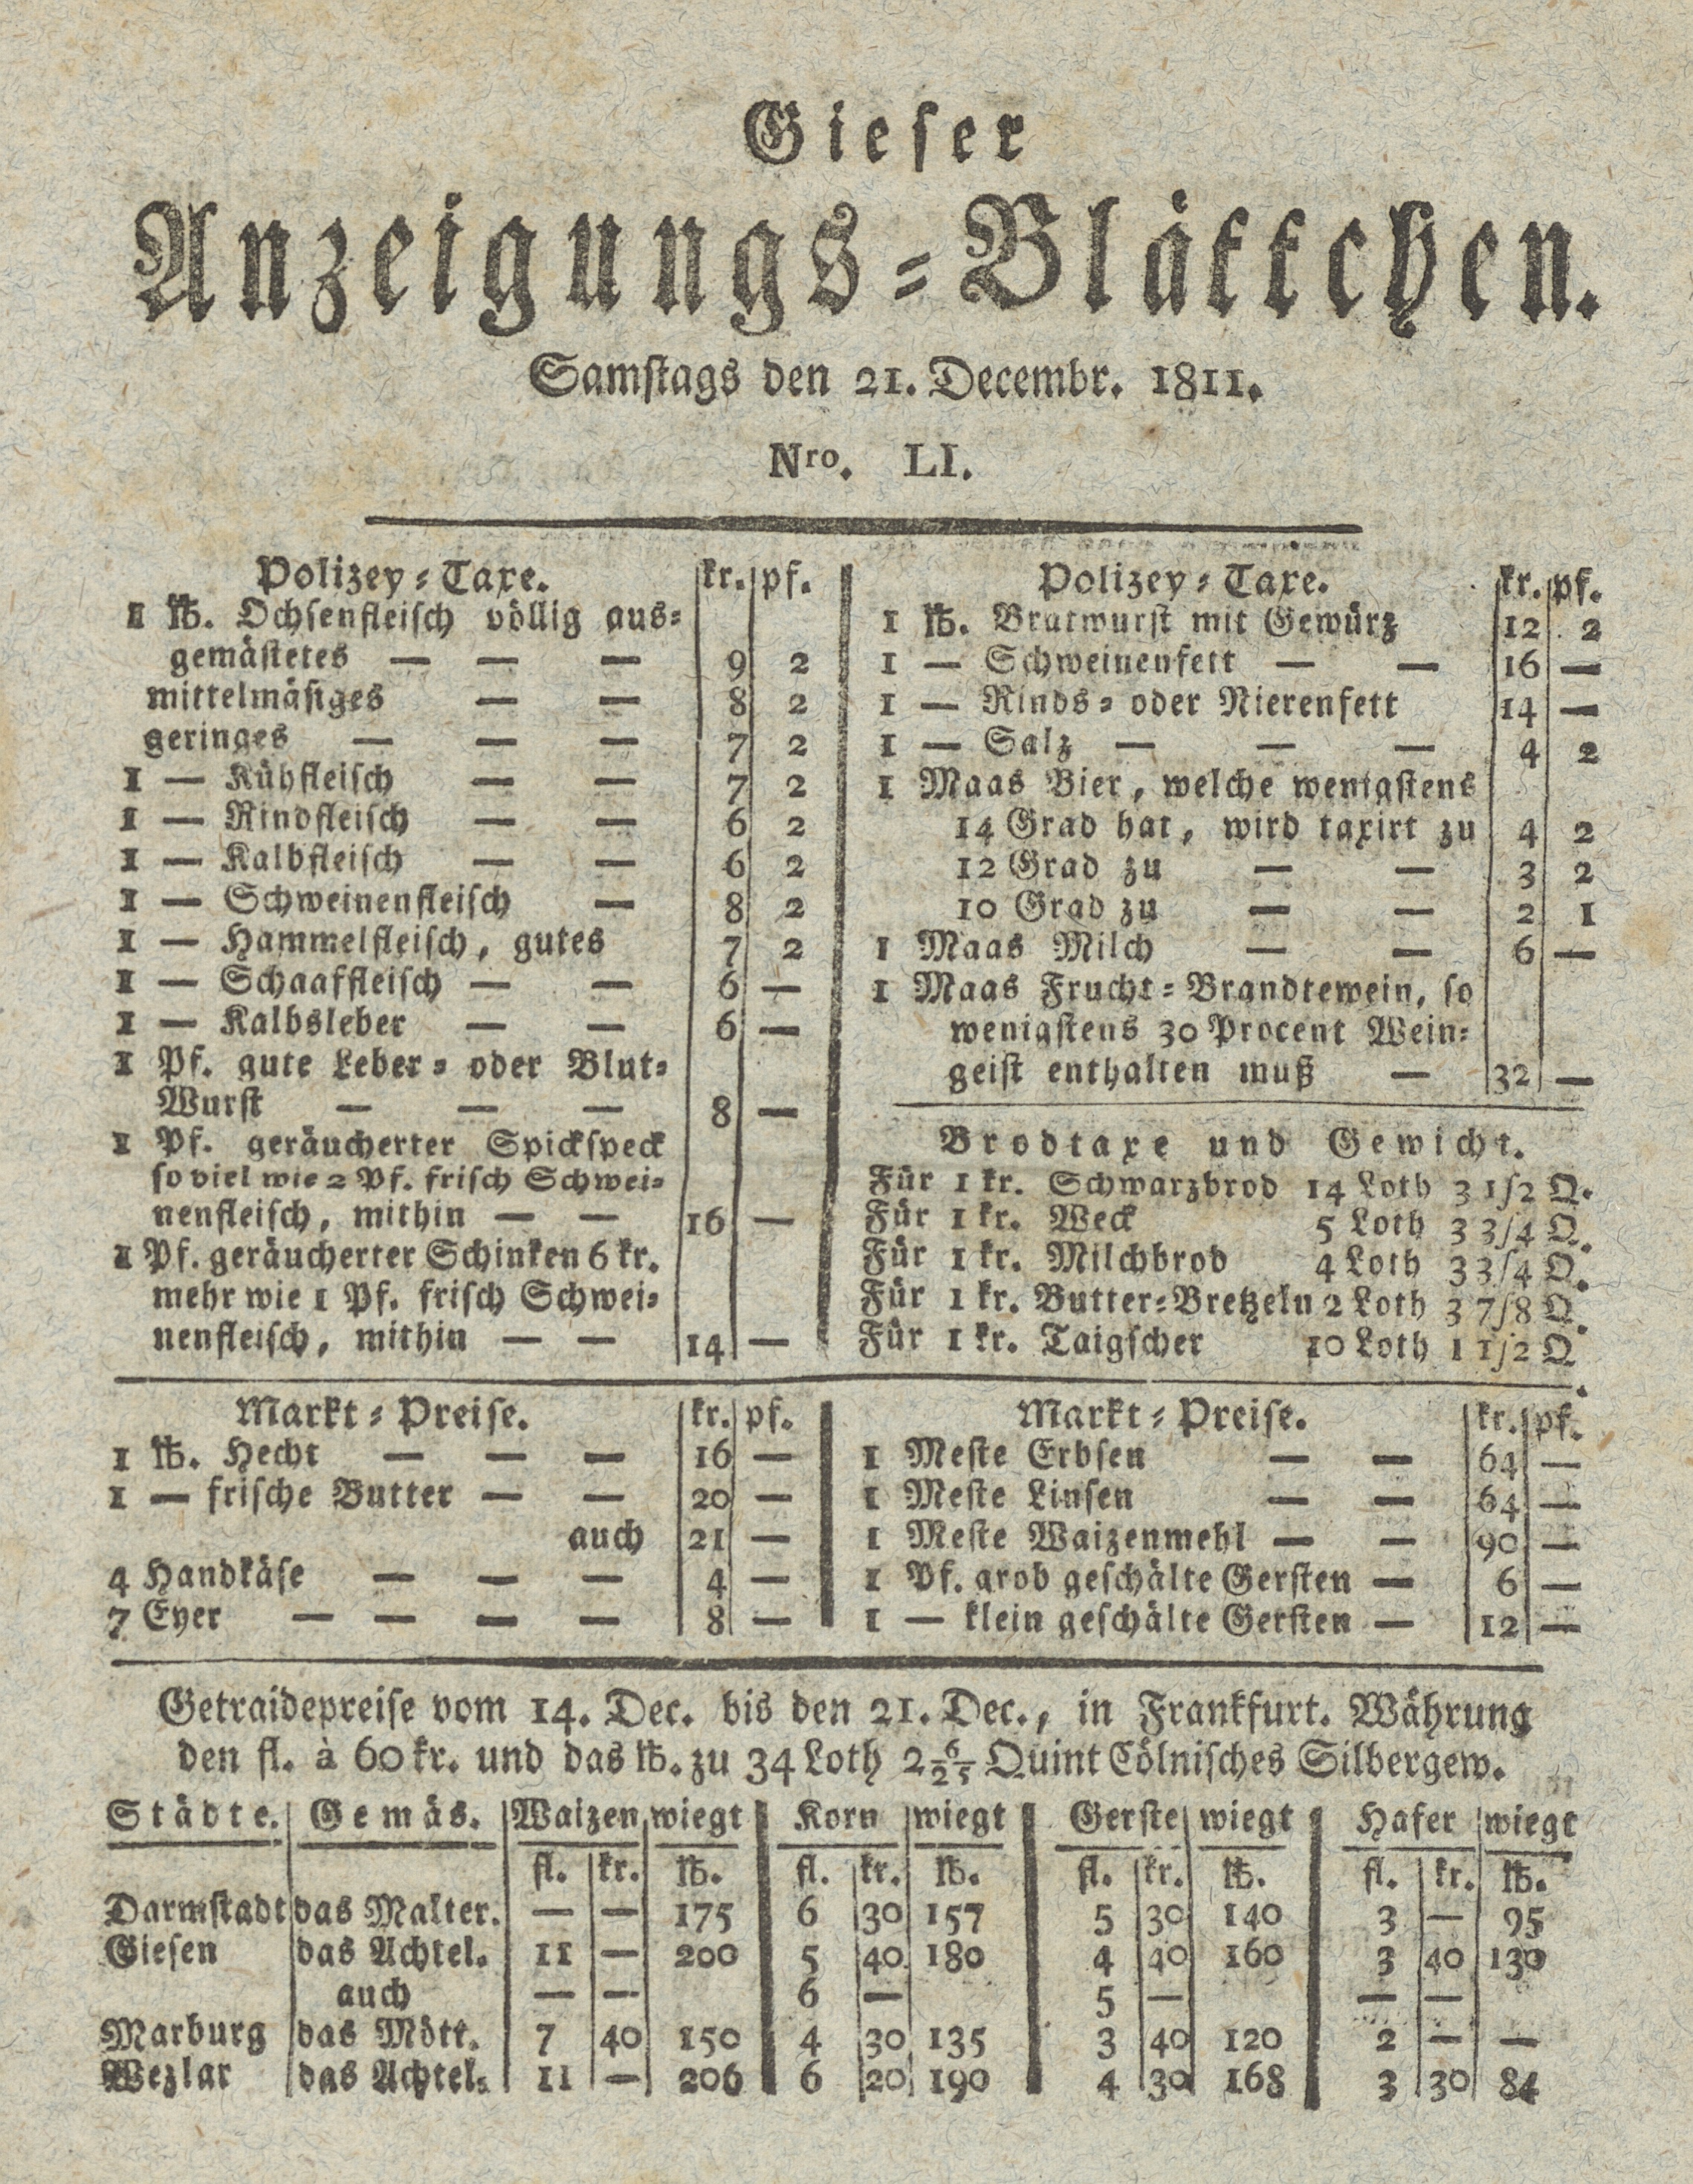 Gieser
Anzeigungs-Blättchen.
Samstags den 21. Decembr. 1811.
Nro. LI.
Polizey-Taxe. kr. pf.
1 ℔. Ochsenfleisch völlig aus-
gemästetes — — — 9 2
mittelmäsiges — — 8 2
geringes — — — 7 2
1 — Kühfleisch — — 7 2
1 — Rindfleisch — — 6 2
1 — Kalbfleisch — — 6 2
1 — Schweinenfleisch — 8 2
1 — Hammelfleisch, gutes 7 2
1 — Schaaffleisch — — 6 —
1 — Kalbsleber — — 6 —
1 Pf. gute Leber- oder Blut-
Wurst — — — 8 —
1 Pf. geräucherter Spickspeck
so viel wie 2 Pf. frisch Schwei-
nenfleisch, mithin — — 16 —
1 Pf. geräucherter Schinken 6 kr.
mehr wie 1 Pf. frisch Schwei-
nenfleisch, mithin — — 14 —
Polizey-Taxe. kr. pf.
1 ℔. Bratwurst mit Gewürz 12 2
1 — Schweinenfett — — 16 —
1 — Rinds- oder Nierenfett 14 —
1 — Salz — — — 4 2
1 Maas Bier, welche wenigstens
14 Grad hat, wird taxirt zu 4 2
12 Grad zu — — 3 2
10 Grad zu — — 2 1
1 Maas Milch — — 6 —
1 Maas Frucht-Brandtewein, so
wenigstens 30 Procent Wein-
geist enthalten muß — 32 —
Brodtaxe und Gewicht.
Für 1 kr. Schwarzbrod 14 Loth 3 1/2 Q.
Für 1 kr. Weck 5 Loth 3 3/4 Q.
Für 1 kr. Milchbrod 4 Loth 3 3/4 Q.
Für 1 kr. Butter-Bretzeln 2 Loth 3 7/8 Q.
Für 1 kr. Taigscher 10 Loth 1 1/2 Q.
Markt-Preise. kr. pf.
1 ℔. Hecht — — — 16 —
1 — frische Butter — — 20 —
auch 21 —
4 Handkäse — — — 4 —
7 Eyer — — — — 8 —
Markt-Preise. kr. pf.
1 Meste Erbsen — — 64 —
1 Meste Linsen — — 64 —
1 Meste Waizenmehl — — 90 —
1 Pf. grob geschälte Gersten — 6 —
1 — klein geschälte Gersten — 12 —
Getraidepreise vom 14. Dec. bis den 21. Dec., in Frankfurt. Währung
den fl. à 60 kr. und das ℔. zu 34 Loth 2 6/25 Quint Cölnisches Silbergew.
Städte. Gemäs. Waizen wiegt Korn wiegt Gerste wiegt Hafer wiegt
fl. kr. ℔. fl. kr. ℔. fl. kr. ℔. fl. kr. ℔.
Darmstadt das Malter. — — 175 6 30 157 5 30 140 3 — 95
Giesen das Achtel. 11 — 200 5 40 180 4 40 160 3 40 130
auch — — 6 — 5 — — —
Marburg das Mött. 7 40 150 4 30 135 3 40 120 2 — —
Wezlar das Achtel. 11 — 206 6 20 190 4 30 168 3 30 84